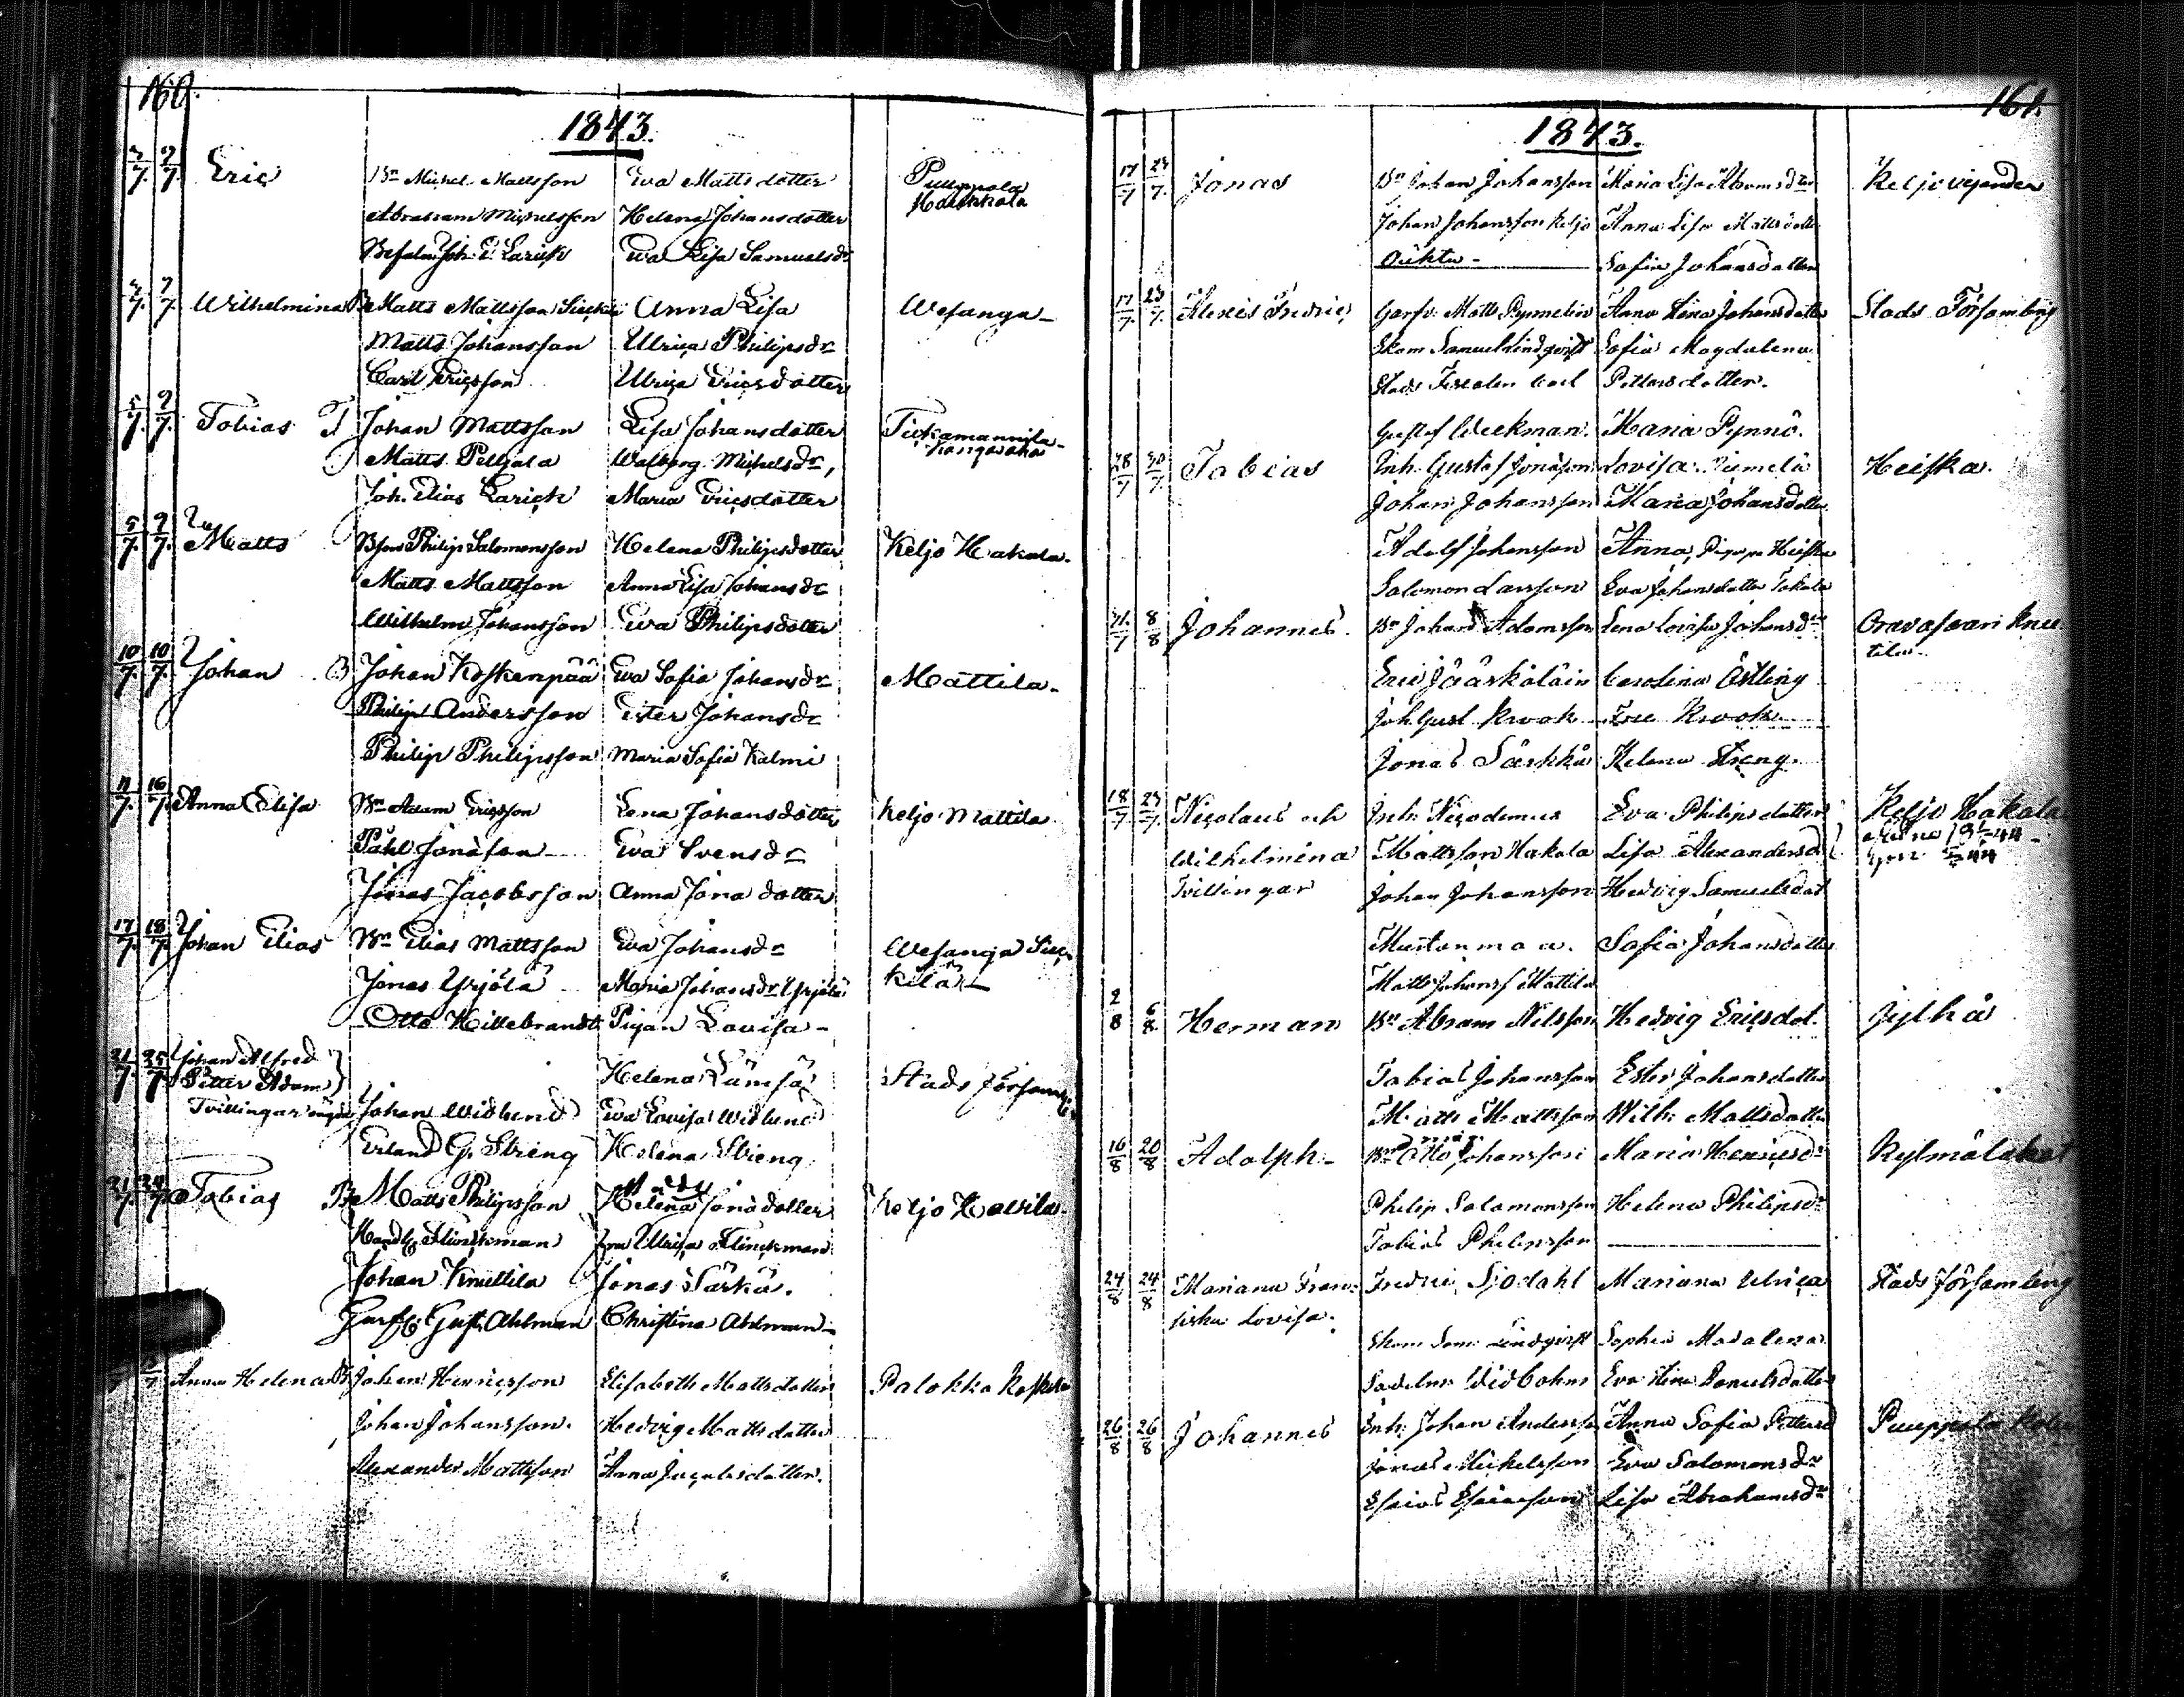 160.
1843.
7. 7. Eric Bn Michel Mattsson Eva Matts dotter Puuppola
Abraham Michelsson Helena Johansdotter
Joh. E. Larick Eva Lisa Samuelsdr
7. 7. Wilhelmina B Matts Mattsson Anna Lisa Wesanga
Matts Johansson Ulrica Philipsdr
Carl Ericsson Ulrica Ericsdotter
5/7. 9/7. Tobias Johan Mattsson Lisa Johansdotter
Matts Peltjala Walborg Michelsdr,
Joh. Elias Larick Maria Ericsdotter
5/7. 9/7. Matts Philip Salomonsson Helena Philipsdotter Keljo Hakala.
Matts Mattsson Anna Lisa Johansdr
Wilhelm Johansson Eva Philipsdotter
10/7. 10/7. Johan B Johan Koskenpää Eva Sofia Johansdr Mattila.
Philip Andersson Ester Johansdr
Philip Philipsson Maria Sofia Kalmi
11/7. 16/7. Anna Elisa Bn Adam Ericsson Lena Johansdotter Keljo Mattila
Påhl Jonasson Eva Svensdr
Jonas Jacobsson Anna Jona dotter
17/7. 18/7. Johan Elias Bn Elias Mattsson Eva Johansdr Wesanga Siec
Jonas Yrjölä Maria Johansdr Yrjölä kilä
Otto Hillebrandt Pigan Lovisa
21/7. 25/7. Johan Alfred
Petter Adam Helena Lämsä Stads församl
Tvillingar Johan Widlund Eva Lovisa Widlund
Erland G. Streng Helena Streng
21/7. Tobias B Matts Philipsson Helena Jona dotter Keljo Mattila
Flinckman Fru Ulrica Flinckman
Johan Knuttila Jonas Särkä.
Gust. Ahlman Christina Ahlman
7 Anna Helena B Johan Henricsson Elisabeth Matts dotter Palokka Koskela
Johan Johansson. Hedvig Matts dotter
Alexander Mattsson Anna Jacobsdotter.
161.
1843.
17/7 23/7. Jonas Bn Johan Johansson Maria Lisa Abramsdr Keljo
Johan Johansson Keljo Anna Lisa Mattsdotter
Sofia Johansdotter
17/7. 23/7. Alexis Fredric Garfv. Matts Anna Lena Johansdotter Stads Församling
Skom Samuel Lindqvist Sofia Magdalena
Stads Fiscalen Carl Petters dotter.
Gustaf Weckman. Maria Pynnö.
28/7 30/7. Tobias Inh. Gustaf Jonasson Lovisa Heiska.
Johan Johansson Maria Johansdotter
Adolf Johansson Anna, Piga på Heiska
Salomon Larsson Eva Johansdotter Tokala
31/7 8/8 Johannes. Bn Johan Adamsson Lena Lovisa Johansdr Oravasaari Knu
tila
Eric Jääskäläin Carolina Östling
Joh Gust Krook Fru Krook
Jonas Särkkä Helena Streng.
18/7. 23/7. Nicolaus och Inh. Nicodemus Eva Philipsdotter Keljo Hakala
Wilhelmina Mattsson Hakala Lisa Alexandersd
Tvillingar Johan Johansson Hedvig Samuelsdot
Mustonmaa. Sofia Johansdotter
Matts Johanss Mattila
2/8 6/8. Herman Bn Abram Nilsson Hedvig Ericsdot. Jylhä
Tobias Johansson Ester Johansdotter
Matts Mattsson Wilh. Mattsdotter
16/8 20/8 Adolph Bn Otto Johansson Maria Henricsdr
Philip Salomonsson Helena Philipsdr
Tobias Philipsson
24/8 24/8 Mariana Fran- Fredric Sjodahl Mariana Ulrica Stads församling
siska Lovisa.
Skom Sam. Lindqvist Sophia Madalena.
Sadelm. Widbohm Eva Stina Danielsdotter
26/8 26/8 Johannes Inh. Johan Andersso Anna Sofia Pettersd Puuppola
Jonas Mickelsson Eva Salomonsdr
Esaias Esaiasson Lisa Abrahamsdr